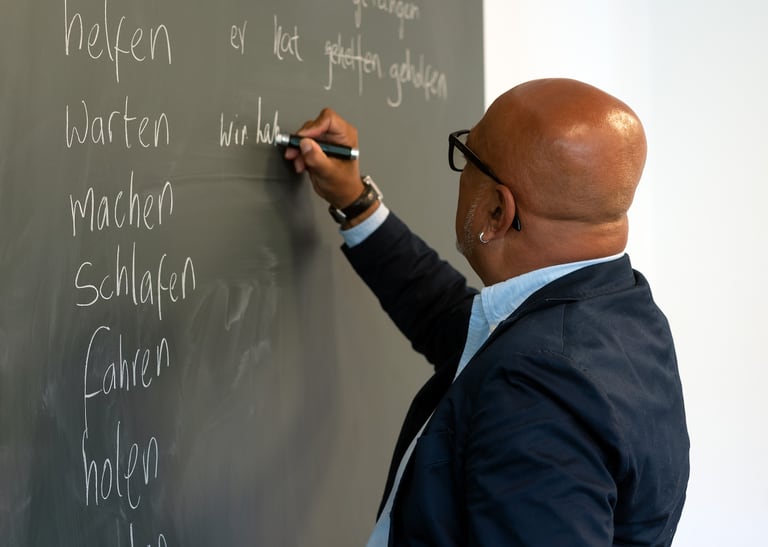 gefangen
helfen er hat gehelfen geholfen
warten wir hab
machen
schlafen
fahren
holen